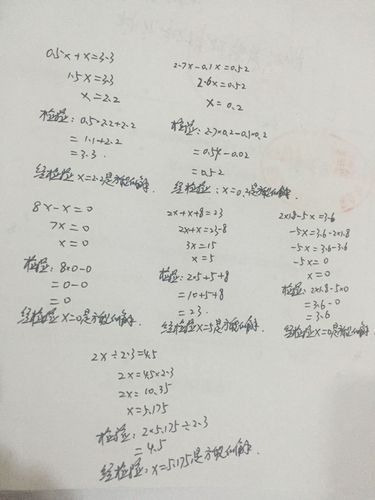 0.5x+x=3.3
1.5x=3.3
x=2.2
检验：0.5×2.2+2.2
=1.1+2.2
=3.3.
经检验x=2.2是方程的解
2.7x-0.1x=0.52
2.6x=0.52
x=0.2
检验：2.7×0.2-0.1×0.2
=0.54-0.02
=0.52
经检验：x=0.2是方程的解.
8x-x=0
7x=0
x=0
检验：8×0-0
=0-0
=0
经检验x=0是方程的解.
2x+x+8=23
2x+x=23-8
3x=15
x=5
检验：2×5+5+8
=10+5+8
=23.
经检验x=5是方程的解.
2×1.8-5x=3.6
-5x=3.6-2×1.8
-5x=3.6-3.6
-5x=0
x=0
检验：2×1.8-5×0
=3.6-0
=3.6
经检验x=0是方程的解.
2x÷2.3=4.5
2x=4.5×2.3
2x=10.35
x=5.175
检验：2×5.175÷2.3
=4.5
经检验：x=5.175是方程的解.